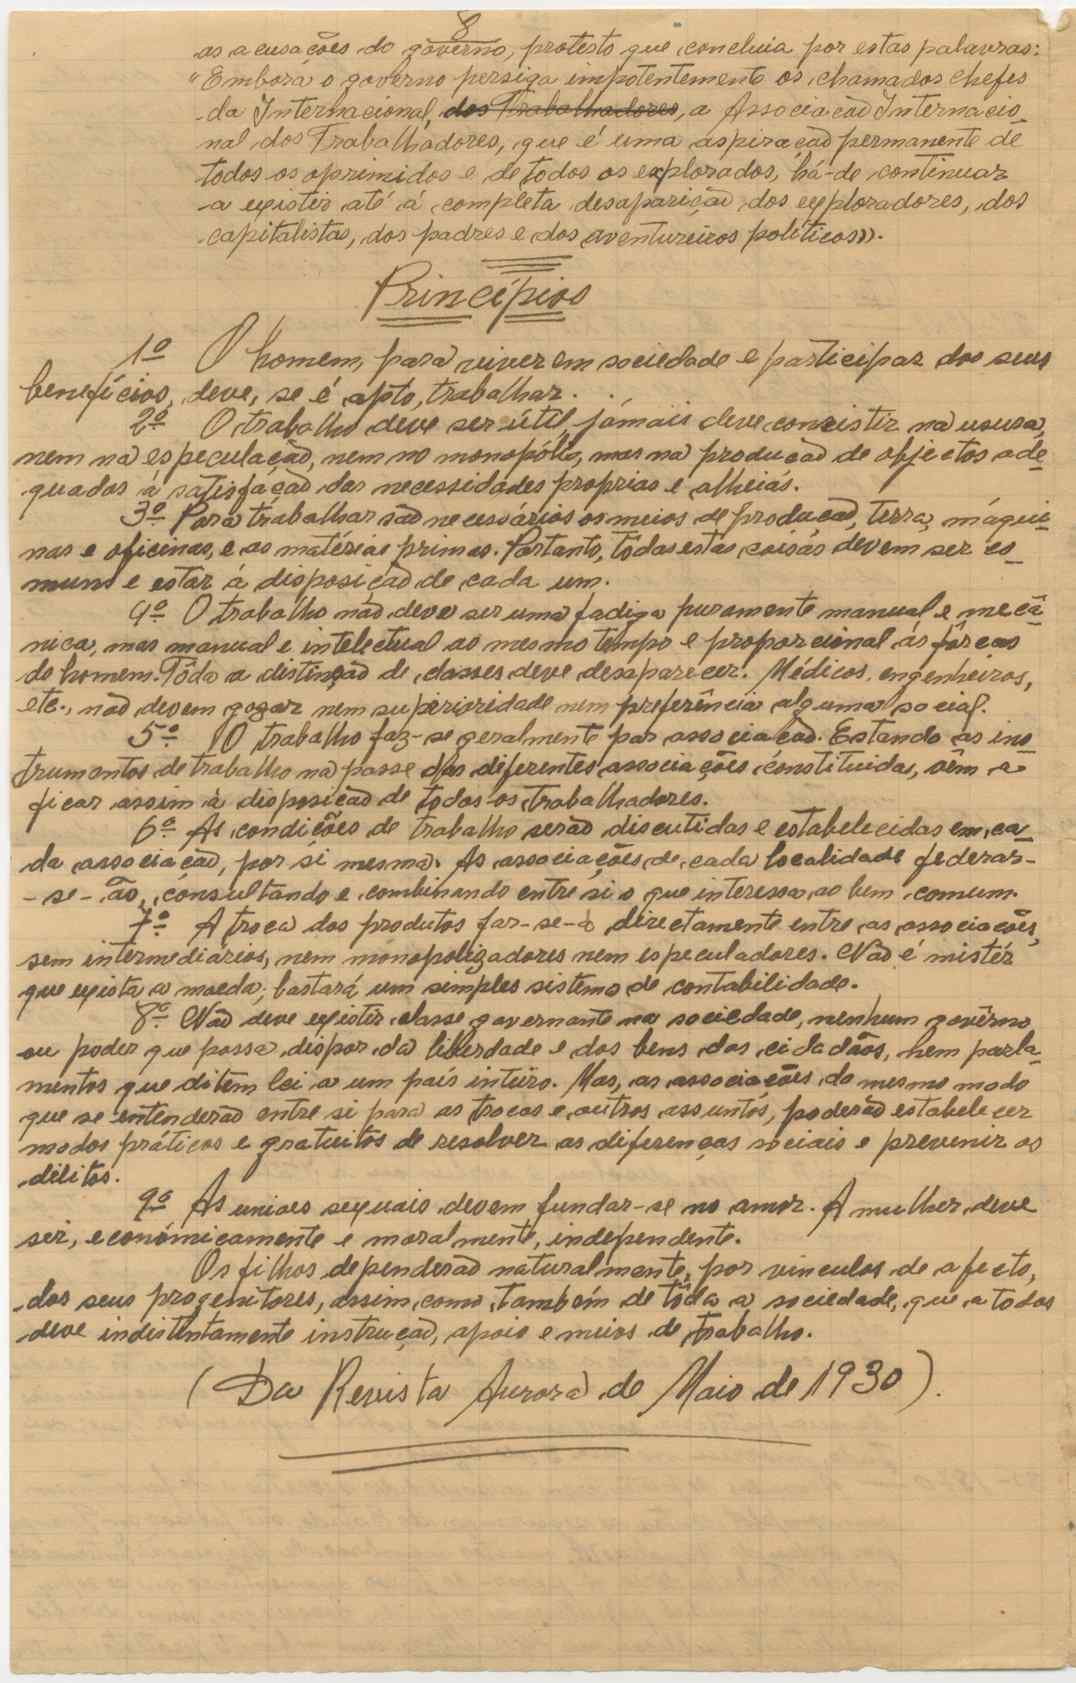 8
as acusações do govêrno, protesto que concluia por estas palavras:
"Embora o govêrno persiga impotentemente os chamados chefes
da Internacional, dos Trabalhadores, a Associação Internacio_
nal dos Trabalhadores, que é uma aspiração permanente de
todos os oprimidos e de todos os explorados, há-de continuar
a existir até á completa desaparição dos exploradores, dos
capitalistas, dos padres e dos aventureiros políticos».
Princípios
1º O homem, para viver em sociedade e participar dos seus
benefícios, deve, se é apto, trabalhar.
2º O trabalho deve ser útil, jámais deve consistir na usura,
nem na especulação, nem no monopólio, mas na produção de objectos ade_
quados á satisfação das necessidades proprias e alheias.
3º Para trabalhar são necessários os meios de produção, terra, máqui_
nas e oficinas, e as matérias primas. Portanto, tôdas estas coisas devem ser co_
muns e estar á disposição de cada um.
4º O trabalho não deve ser uma fadiga puramente manual e mecâ_
nica, mas manual e intelectual ao mesmo tempo e proporcional ás fôrças
do homem. Tôda a distinção de classes deve desaparecer. Médicos, engenheiros,
etc., não devem gozar nem superioridade nem preferência alguma social.
5º O trabalho faz-se geralmente por associação. Estando os ins_
trumentos de trabalho na posse das diferentes associações constituidas, vêm a
ficar assim á disposição de todos os trabalhadores.
6º As condições de trabalho serão discutidas e estabelecidas em ca_
da associação, por si mesma. As associações de cada localidade federar-
-se-ão, consultando e combinando entre si o que interessa ao bem comum.
7º A troca dos produtos far-se-á directamente entre as associações,
sem intermediários, nem monopolizadores nem especuladores. Não é mistér
que exista a moeda; bastará um simples sistema de contabilidade.
8º Não deve existir classe governante na sociedade, nenhum govêrno
ou poder que possa dispor da liberdade e dos bens dos cidadãos, nem parla_
mentos que ditem lei a um país inteiro. Mas, as associações do mesmo modo
que se entenderão entre si para as trocas e outros assuntos, poderão estabelecer
modos práticos e gratuitos de resolver as diferenças sociais e prevenir os
delitos.
9º As unioes sexuais devem fundar-se no amor. A mulher deve
ser, económicamente e moralmente, independente.
Os filhos dependerão naturalmente, por vinculos de afecto,
dos seus progenitores, assim como tambêm de tôda a sociedade, que a todos
deve indistintamente instrução, apoio e meios de trabalho.
(Da Revista Aurora de Maio de 1930).